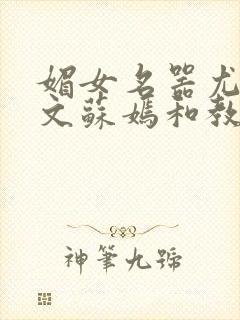 媚女名器尤
文蘇媽和教
神筆九號